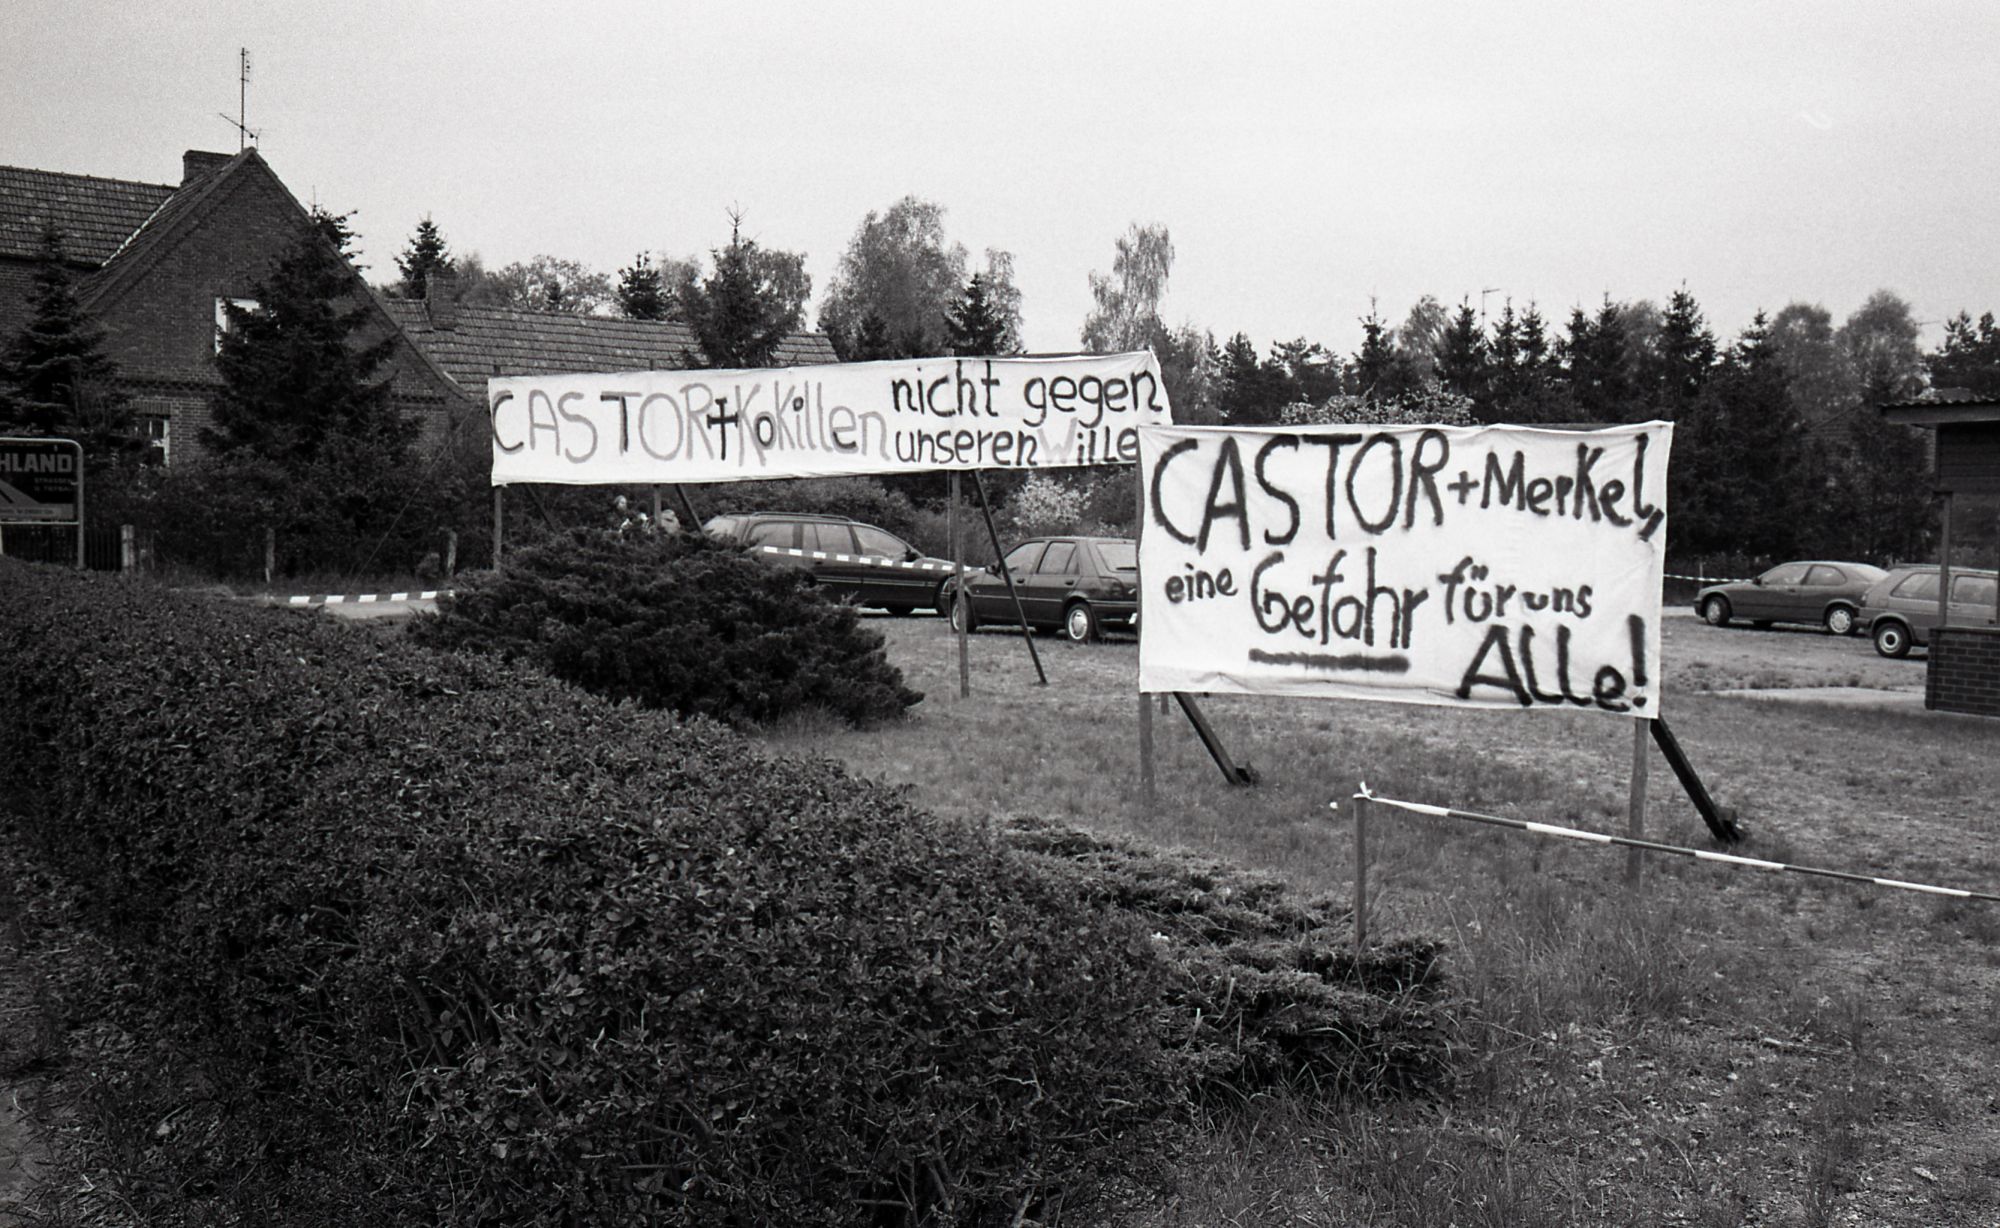 CASTOR+Kokillen nicht gegen
unseren Wille
CASTOR+Merkel,
eine Gefahr für uns
ALLe!
HLAND